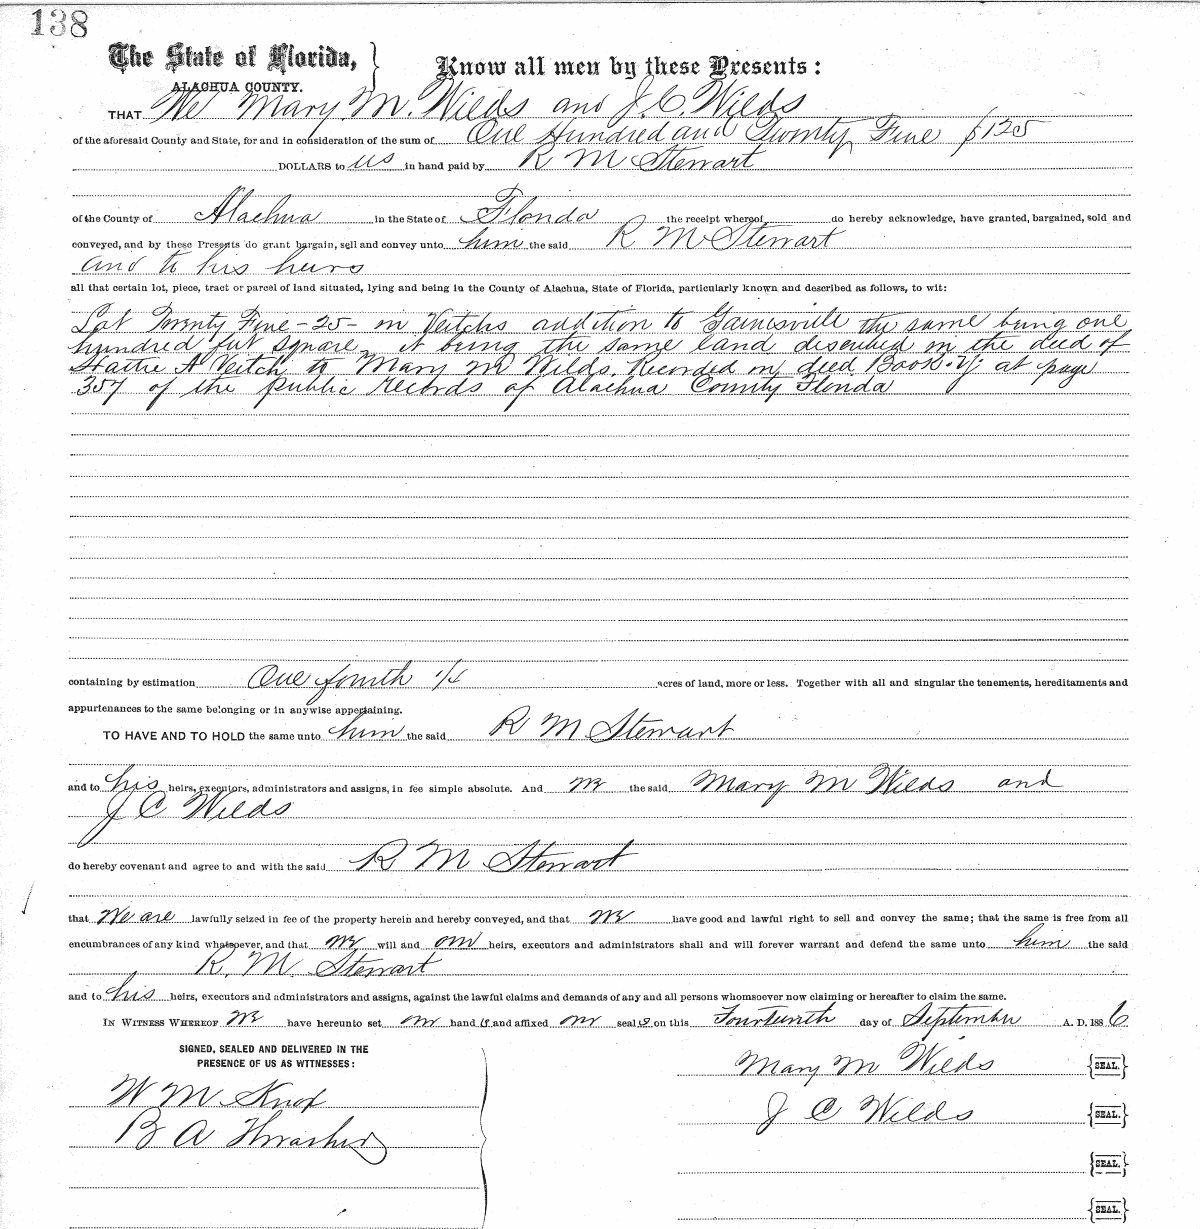 138
The State of Florida, Know all men by these Presents:
ALACHUA COUNTY.
THAT We Mary M. Wilds and J. C. Wilds
of the aforesaid County and State, for and in consideration of the sum of One Hundred and Twenty Five $125
DOLLARS to us in hand paid by R M Stewart
of the County of Alachua in the State of Florida the receipt whereof do hereby acknowledge, have granted, bargained, sold and
conveyed, and by these Presents do grant bargain, sell and convey unto him the said R M Stewart
and to his heirs
all that certain lot, piece, tract or parcel of land situated, lying and being in the County of Alachua, State of Florida, particularly known and described as follows, to wit:
Lot Twenty Five - 25 - in Veitchs addition to Gainesville the same being one
hundred feet square it being the same land described in the deed of
Hattie A Veitch to Mary M Wilds. Recorded in deed Book at page
357 of the public records of Alachua County Florida
containing by estimation One fourth 1/4 acres of land, more or less. Together with all and singular the tenements, hereditaments and
appurtenances to the same belonging or in anywise appertaining.
TO HAVE AND TO HOLD the same unto him the said R M Stewart
and to his heirs, executors, administrators and assigns, in fee simple absolute. And we the said Mary M Wilds and
J C Wilds
do hereby covenant and agree to and with the said R M Stewart
that We are lawfully seized in fee of the property herein and hereby conveyed, and that we have good and lawful right to sell and convey the same; that the same is free from all
encumbrances of any kind whatsoever, and that we will and our heirs, executors and administrators shall and will forever warrant and defend the same unto him the said
R. M. Stewart
and to his heirs, executors and administrators and assigns, against the lawful claims and demands of any and all persons whomsoever now claiming or hereafter to claim the same.
IN WITNESS WHEREOF we have hereunto set our hand s and affixed our seal s on this Fourteenth day of September A. D. 188 6
SIGNED, SEALED AND DELIVERED IN THE
PRESENCE OF US AS WITNESSES:
Mary M Wilds {SEAL.}
W M Knox
J C Wilds {SEAL.}
B A Thrasher
{SEAL.}
{SEAL.}